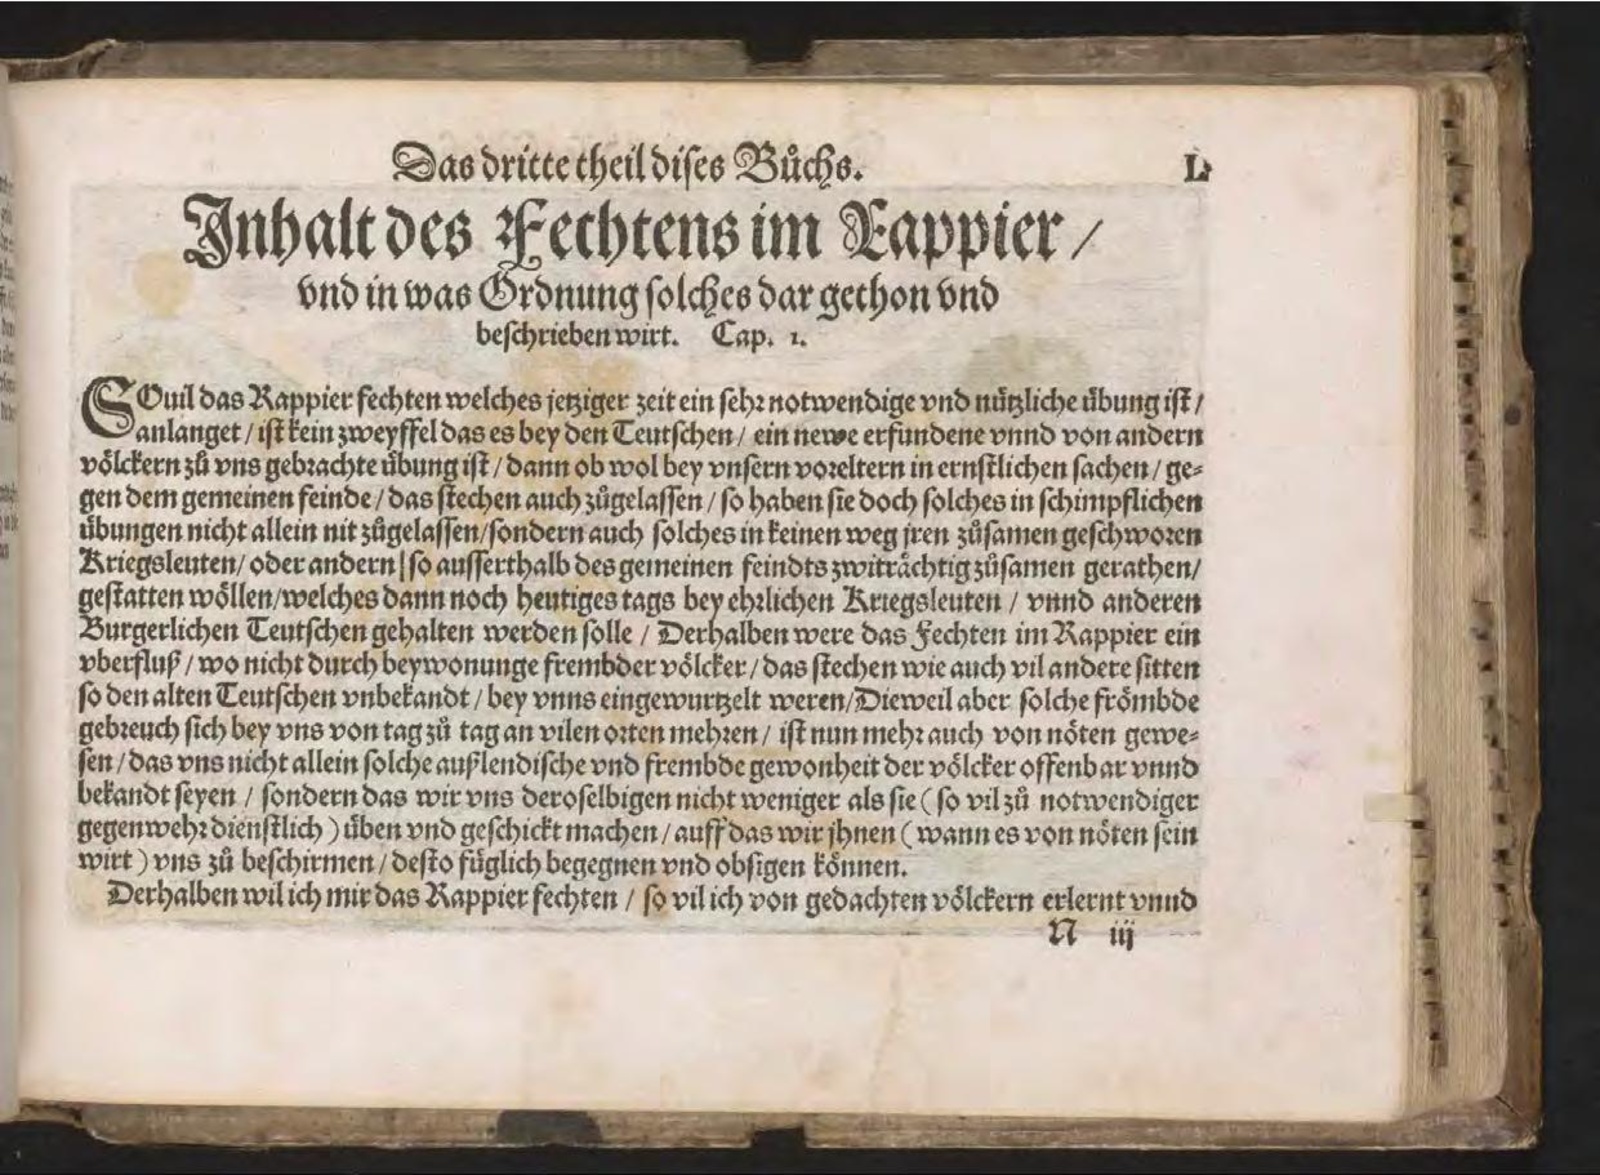 Das dritte theil dises Bůchs. L
Inhalt des Fechtens im Rappier /
vnd in was Ordnung solches dar gethon vnd
beschrieben wirt. Cap. 1.
SOuil das Rappier fechten welches jetziger zeit ein sehr notwendige vnd nützliche übung ist /
anlanget / ist kein zweyffel das es bey den Teutschen / ein newe erfundene vnnd von andern
völckern zů vns gebrachte übung ist / dann ob wol bey vnsern voreltern in ernstlichen sachen / ge⸗
gen dem gemeinen feinde / das stechen auch zůgelassen / so haben sie doch solches in schimpflichen
übungen nicht allein nit zůgelassen / sondern auch solches in keinen weg jren zůsamen geschworen
Kriegsleuten / oder andern / so ausserthalb des gemeinen feindts zwiträchtig zůsamen gerathen /
gestatten wöllen / welches dann noch heutiges tags bey ehrlichen Kriegsleuten / vnnd anderen
Burgerlichen Teutschen gehalten werden solle / Derhalben were das Fechten im Rappier ein
vberfluß / wo nicht durch beywonunge frembder völcker / das stechen wie auch vil andere sitten
so den alten Teutschen vnbekandt / bey vnns eingewurtzelt weren / Dieweil aber solche frömbde
gebreuch sich bey vns von tag zů tag an vilen orten mehren / ist nun mehr auch von nöten gewe⸗
sen / das vns nicht allein solche außlendische vnd frembde gewonheit der völcker offenbar vnnd
bekandt seyen / sondern das wir vns deroselbigen nicht weniger als sie ( so vil zů notwendiger
gegenwehr dienstlich ) üben vnd geschickt machen / auff das wir jhnen ( wann es von nöten sein
wirt ) vns zů beschirmen / desto füglich begegnen vnd obsigen können.
Derhalben wil ich mir das Rappier fechten / so vil ich von gedachten völckern erlernt vnnd
N iij